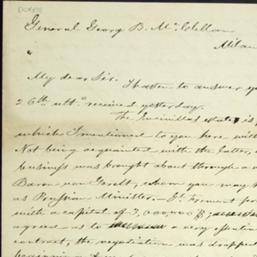 General Georg B. McClellan
Milan
My dear Sir.
I hasten to answer yo
26th ulto. received yesterday.
The Encinillas estate is
which I mentioned to you here with
Not being acquainted with the latter,
business was brought about through a
Baron von Gerolt, whom you may
as Prussian Minister. Fremont for
with a capital of 3,000,000 $,
agreed as to a very
contract, the negotiation was dropped